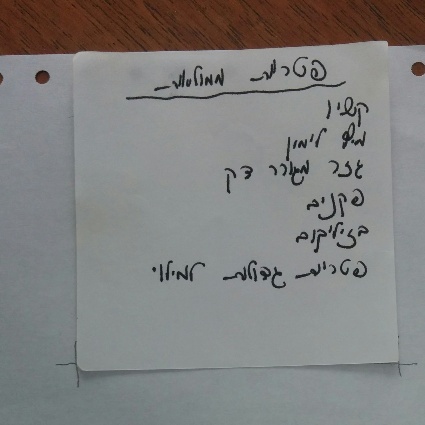 פטריות ממולאות
קשיו
מיץ לימון
גזר מגורר דק
פקנים
בזיליקום
פטריות גדולות למילוי